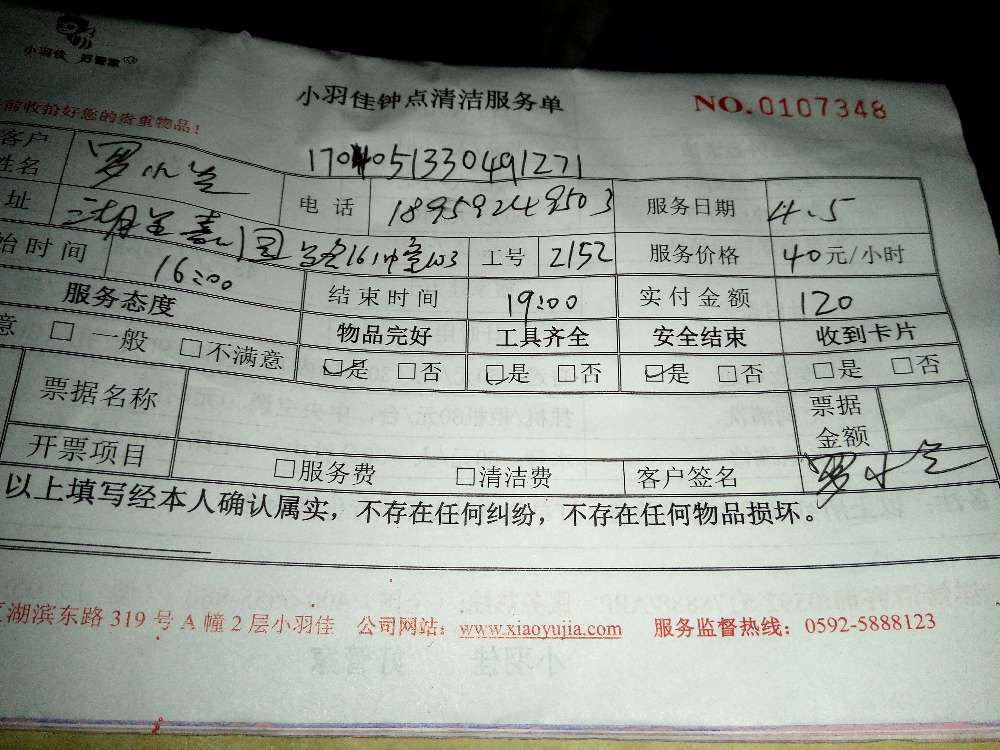 小羽佳 好管家
小羽佳钟点清洁服务单 NO.0107348
前收拾好您的贵重物品！
客户姓名 罗小兰 17040513304912​71
址 电话 18959249503 服务日期 4.5
工号 2152 服务价格 40元/小时
始时间 16:00 结束时间 19:00 实付金额 120
服务态度 物品完好 工具齐全 安全结束 收到卡片
意 □一般 □不满意 是 □否 是 □否 是 □否 □是 □否
票据名称 票据金额
开票项目 □服务费 □清洁费 客户签名
以上填写经本人确认属实，不存在任何纠纷，不存在任何物品损坏。
湖滨东路319号A幢2层小羽佳 公司网站：www.xiaoyujia.com 服务监督热线：0592-5888123